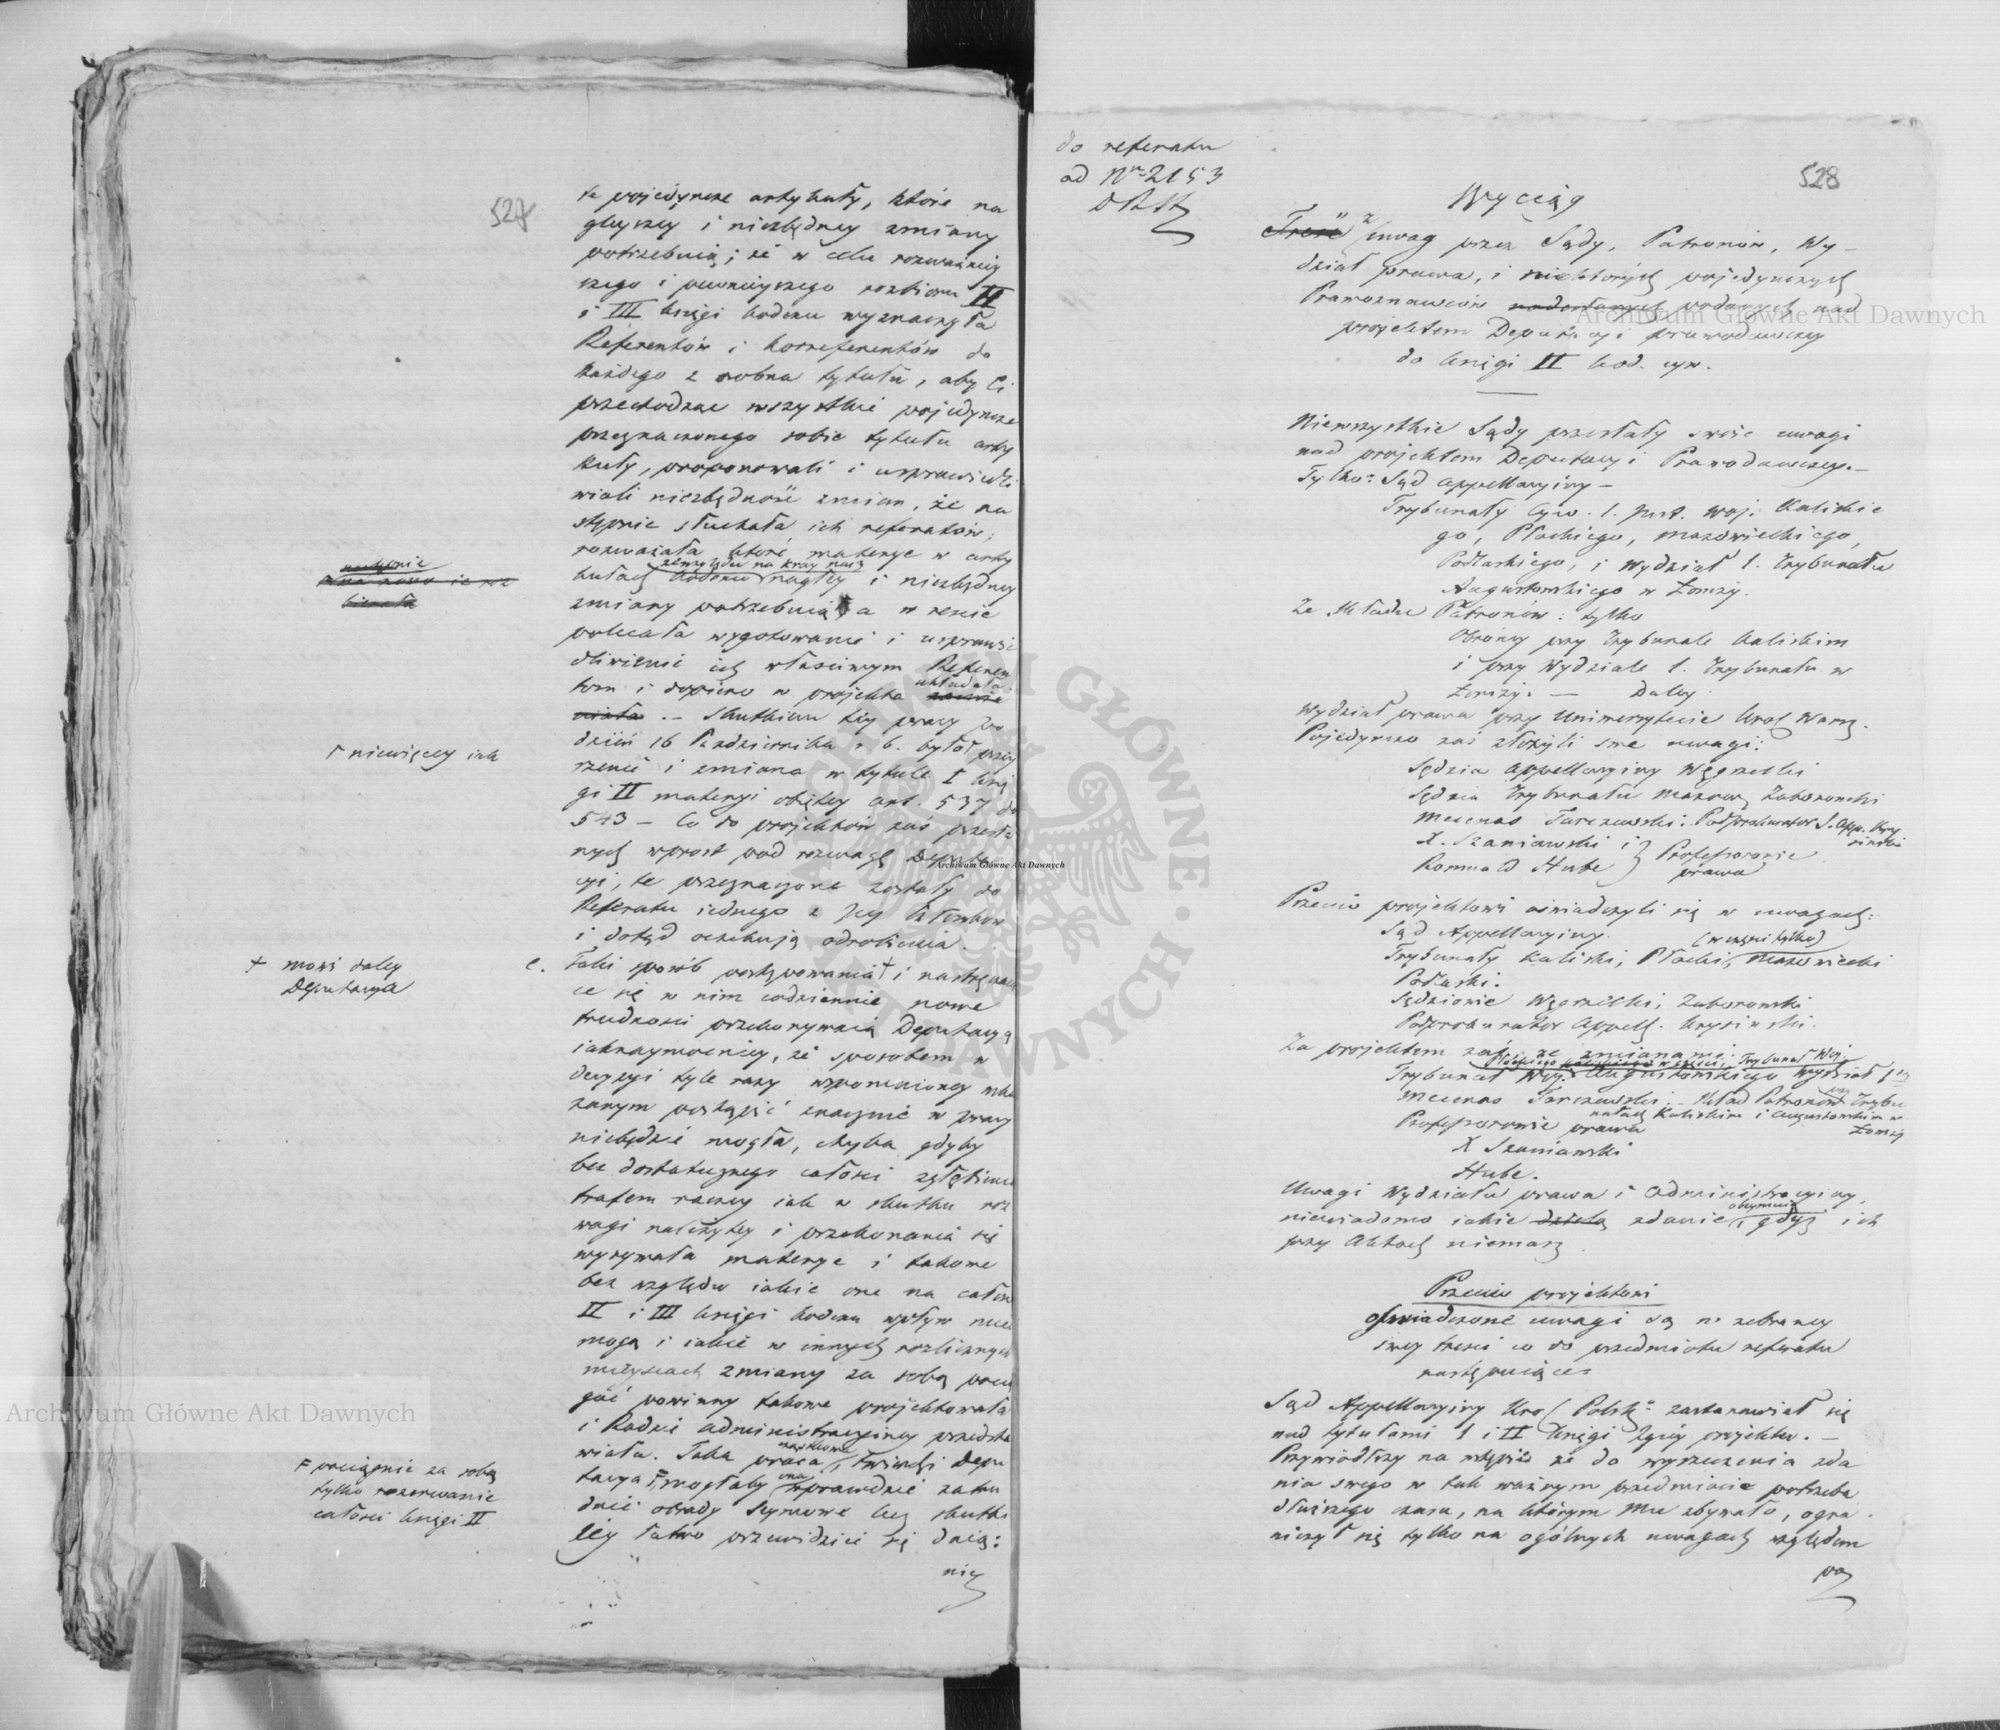 527
te pojedyncze artykuły, które na
głuyszey i niezbędney zmiany
potrzebuią; że w celu rozważniey
szego i pewnieyszego rozbioru II
i III księgi kodexu wyznaczyła
Referentów i Korreferentów do
każdego z osobna tytułu, aby Ci
przechodząc wszystkie pojedyncze
przeznaczonego sobie tytułu arty
kuły, proponowali i usprawiedli
wiali niezbędność zmian, że na
stępnie słuchała ich referatów,
rozważała które materye w arty
ze względu na kray nasz
kułach kodexu nagłey i niezbędney
zmiany potrzebuią a w resie
polecała wygotowanie i usprawie
dliwienie ich właściwym Referen
tom i dopiero w projekta układała
. – Skutkiem tey pracy po
dzień 16 Października r. b. było przey
rzenie i zmiana w tytule I księ
gi II materyi objętey art. 537 do
543 – Co do projektów zaś przesła
nych wprost pod rozwagę Deputa
cyi, te przeznaczone zostały do
Referatu iednego z Jey Członków
i dotąd oczekuią odrobienia.
następnie
Γ niewięcey iak
+ mówi daley
Deputacya
c. Taki sposób postępowania + i nastręczaią
ce się w nim codziennie nowe
trudności przekonywaią Deputacyą
iaknaymocniey, że sposobem w
decyzyi tyle razy wspomnioney wska
zanym postąpić znacznie w pracy
niebędzie mogła, chyba gdyby
bez dostatecznego całości zgłębienia
trafem raczey iak w skutku roz
wagi należytey i przekonania się
wyrywała materye i takowe
bez względu iakie one na całość
II i III księgi kodexu wpływ mieć
mogą i iakie w innych rozlicznych
mieyscach zmiany za sobą pocią
gać powinny takowe projektowała
i Radzie Administracyiney przedsta
wiała. Taka praca, twierdzi Depu
tacya = mogłaby ona wprawdzie zatru
dnić obrady Seymowe lecz skutki
iey łatwo przewidzieć się daią:
nie
= pociągnie za sobą
tylko rozerwanie
całości księgi II
do referatu
ad Nr 2153
528
Wyciąg
Treść z uwag przez Sądy, Patronów, Wy–
dział prawa, i niektórych pojedynczych
Prawoznawców nadesłanych podanych nad
projektem Deputacyi prawodawczey
do księgi II kod. cyw.
Niewszystkie Sądy przesłały swoie uwagi
nad projektem Deputacyi Prawodawczey. –
Tylko: Sąd Appellacyiny –
Trybunały Cyw. I. Inst. Woj: Kaliskie
go, Płockiego, Mazowieckiego,
Podlaskiego, i Wydział I. Trybunału
Augustowskiego w Łomży.
Ze składu Patronów: tylko
Obrońcy przy Trybunale Kaliskim
i przy Wydziale I. Trybunału w
Łomży. – Daley
Wydział prawa przy Uniwersytecie Król Warsz.
Pojedynczo zaś złożyli swe uwagi:
Sędzia Appellacyiny Węgrzecki
Sędzia Trybunału Mazow. Zaborowski
Mecenas Tarczewski. Podprokurator S. App. Kry
siński
X. Szaniawski i } Professorowie
Romuald Hube } prawa
Przeciw projektowi oświadczyli się w uwagach:
Sąd Appellacyiny.
(w części tylko)
Trybunały Kaliski, Płocki, Mazowiecki
Podlaski.
Sędziowie Węgrzecki, Zaborowski
Podprokurator Appell. Krysiński.
Za projektem zaś ze zmianami:
Trybunał Woj.
Trybunał Woj. Augustowskiego Wydział I
Mecenas Tarczewski. – Skład Patronów przy Trybu
nałach Kaliskim i Augustowskim w
Łomży
Professorowie prawa
X Szaniawski
Hube.
Uwagi Wydziału prawa i Administracyiny,
niewiadomo iakie zdanie obeymuią, gdyż ich
przy Aktach niemasz.
Przeciw projektowi
oświadczone uwagi są w zebraney
swey treści co do przedmiotu referatu
następuiące:
Sąd Appellacyiny Król Polskgo zastanawiał się
nad tytułami I i II księgi 2giey projektu. –
Przywiódłszy na wstępie że do wyrzeczenia zda
nia swego w tak ważnym przedmiocie potrzeba
dłuższego czasu, na którym Mu zbywało, ogra
niczył się tylko na ogólnych uwagach względem
po
Archiwum Główne Akt Dawnych
Archiwum Główne Akt Dawnych
Archiwum Główne Akt Dawnych
ARCHIWUM GŁÓWNE AKT DAWNYCH